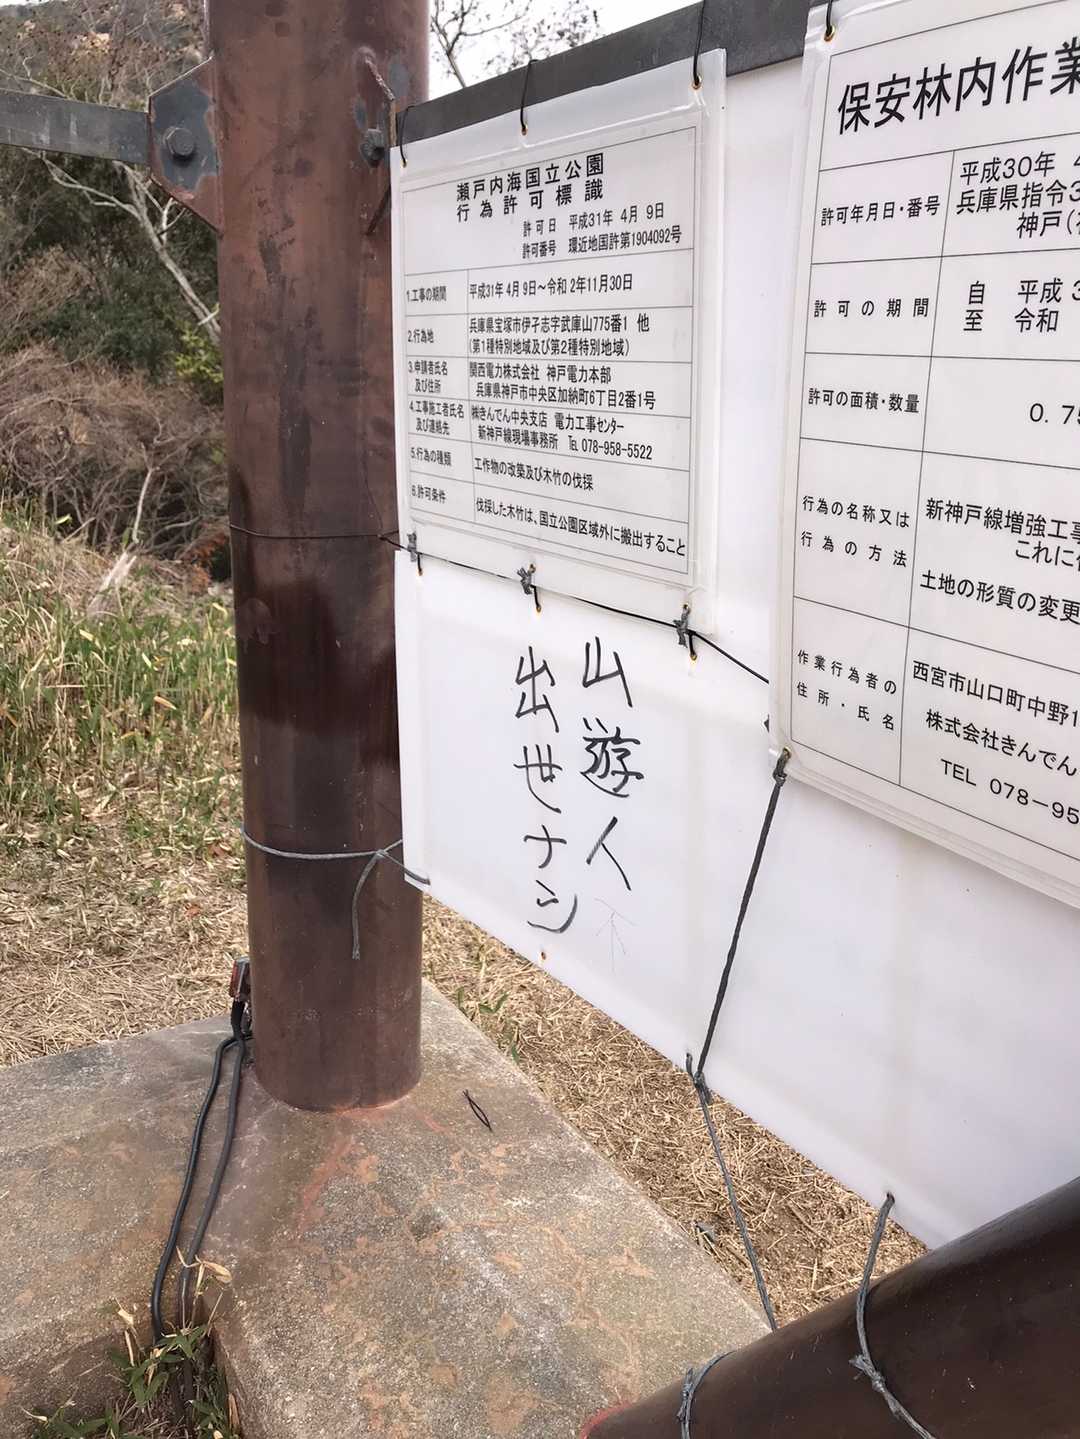 瀬戸内海国立公園
行為許可標識
許可日 平成31年 4月 9日
許可番号 環近地国許第1904092号
1.工事の期間 平成31年 4月 9日～令和 2年11月30日
2.行為地 兵庫県宝塚市伊孑志字武庫山775番1 他
(第1種特別地域及び第2種特別地域)
3.申請者氏名 関西電力株式会社 神戸電力本部
及び住所 兵庫県神戸市中央区加納町6丁目2番1号
4.工事施工者氏名 ㈱きんでん中央支店 電力工事センター
及び連絡先 新神戸線現場事務所 ℡ 078-958-5522
5.行為の種類 工作物の改築及び木竹の伐採
6.許可条件 伐採した木竹は、国立公園区域外に搬出すること
山遊人
出世ナシ
保安林内作業
許可年月日・番号 平成30年 4
兵庫県指令3
神戸(
許可の期間 自 平成 3
至 令和
許可の面積・数量 0. 75
行為の名称又は 新神戸線増強工事
行為の方法 これに
土地の形質の変更
作業行為者の 西宮市山口町中野1
住所・氏名 株式会社きんでん
TEL 078-95